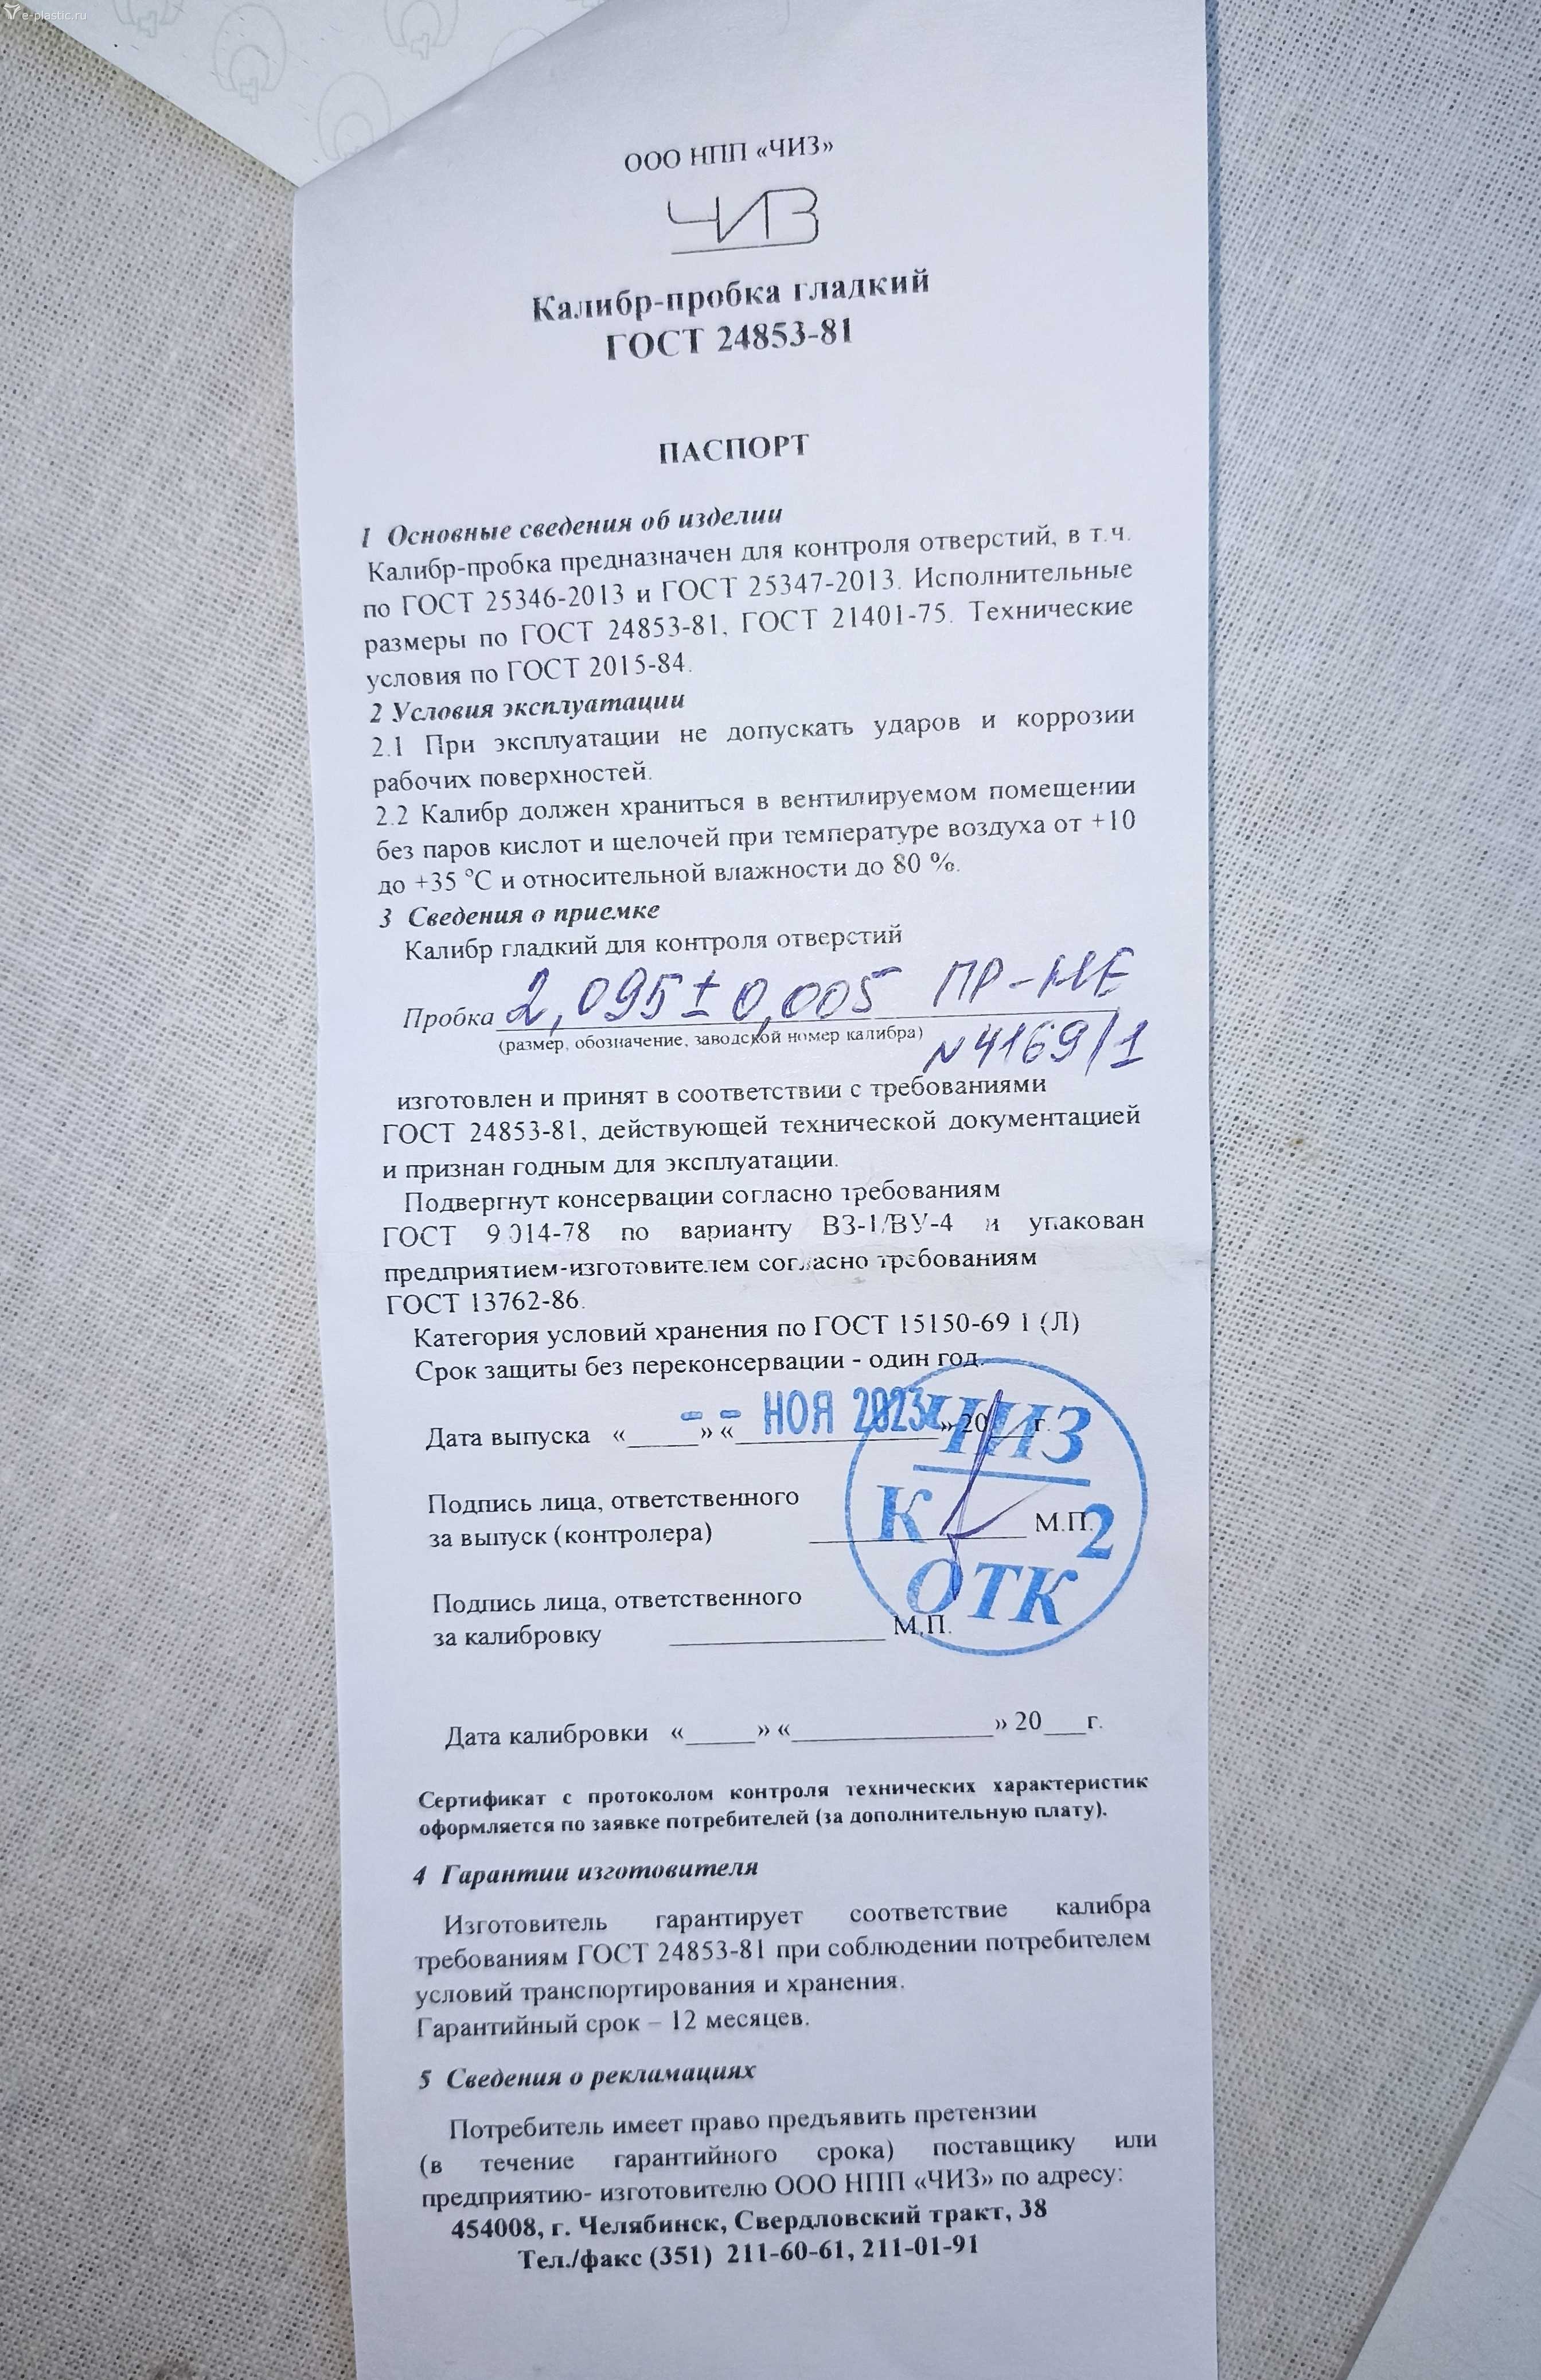 e-plastic.ru
ООО НПП «ЧИЗ»
ЧИЗ
Калибр-пробка гладкий
ГОСТ 24853-81
ПАСПОРТ
1 Основные сведения об изделии
Калибр-пробка предназначен для контроля отверстий, в т.ч.
по ГОСТ 25346-2013 и ГОСТ 25347-2013. Исполнительные
размеры по ГОСТ 24853-81, ГОСТ 21401-75. Технические
условия по ГОСТ 2015-84.
2 Условия эксплуатации
2.1 При эксплуатации не допускать ударов и коррозии
рабочих поверхностей.
2.2 Калибр должен храниться в вентилируемом помещении
без паров кислот и щелочей при температуре воздуха от +10
до +35 °С и относительной влажности до 80 %.
3 Сведения о приемке
Калибр гладкий для контроля отверстий
Пробка 2,095±0,005 ПР-НЕ
(размер, обозначение, заводской номер калибра) N4169/1
изготовлен и принят в соответствии с требованиями
ГОСТ 24853-81, действующей технической документацией
и признан годным для эксплуатации.
Подвергнут консервации согласно требованиям
ГОСТ 9.014-78 по варианту ВЗ-1/ВУ-4 и упакован
предприятием-изготовителем согласно требованиям
ГОСТ 13762-86.
Категория условий хранения по ГОСТ 15150-69 1 (Л)
Срок защиты без переконсервации - один год.
Дата выпуска «_____» «- - НОЯ 2023» 20___г.
ЧИЗ
Подпись лица, ответственного
за выпуск (контролера) ______________ М.П.
К 2
ОТК
Подпись лица, ответственного
за калибровку ______________ М.П.
Дата калибровки «_____» «______________» 20___г.
Сертификат с протоколом контроля технических характеристик
оформляется по заявке потребителей (за дополнительную плату).
4 Гарантии изготовителя
Изготовитель гарантирует соответствие калибра
требованиям ГОСТ 24853-81 при соблюдении потребителем
условий транспортирования и хранения.
Гарантийный срок – 12 месяцев.
5 Сведения о рекламациях
Потребитель имеет право предъявить претензии
(в течение гарантийного срока) поставщику или
предприятию- изготовителю ООО НПП «ЧИЗ» по адресу:
454008, г. Челябинск, Свердловский тракт, 38
Тел./факс (351) 211-60-61, 211-01-91